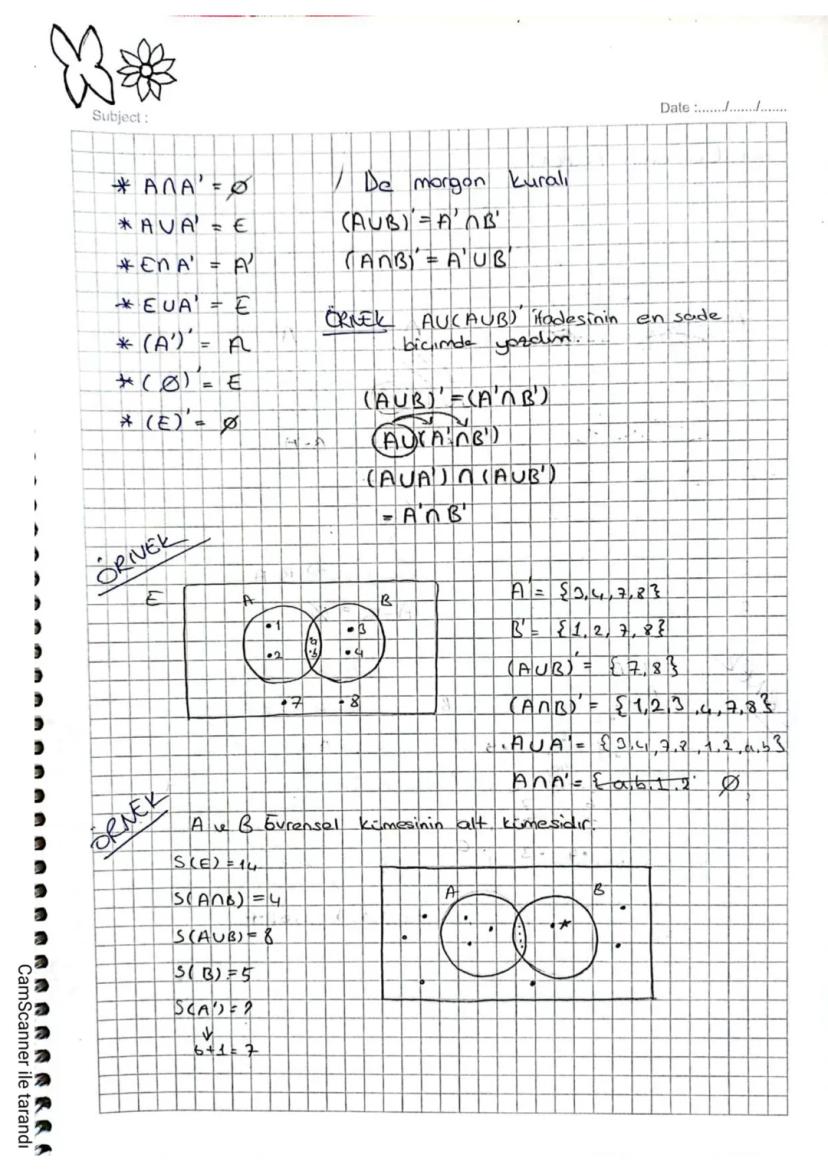 Subject :
Date :......./......./.......
* A∩A' = ∅
* A∪A' = E
* E∩A' = A'
* E∪A' = E
* (A')' = A
* (∅)' = E
* (E)' = ∅
/ De morgan kuralı
(A∪B)' = A'∩B'
(A∩B)' = A'∪B'
ÖRNEK A∪(A∪B)' ifadesinin en sade
biçimde yazdım.
(A∪B)' = (A'∩B')
A∪(A'∩B')
(A∪A') ∩ (A∪B')
= A'∩B'
ÖRNEK
E
A B
•1 •3
•2 •4
a
•b
•7 •8
A' = {3,4,7,8}
B' = {1,2,7,8}
(A∪B)' = {7,8}
(A∩B)' = {1,2,3,4,7,8}
A∪A' = {3,4,7,8,1,2,a,b}
A∩A' = {a,b,1,2 ∅
ÖRNEK
A ve B Evrensel kümesinin alt kümesidir.
S(E) = 14
S(A∩B) = 4
S(A∪B) = 8
S(B) = 5
S(A') = ?
↓
6+1 = 7
A B
CamScanner ile tarandı